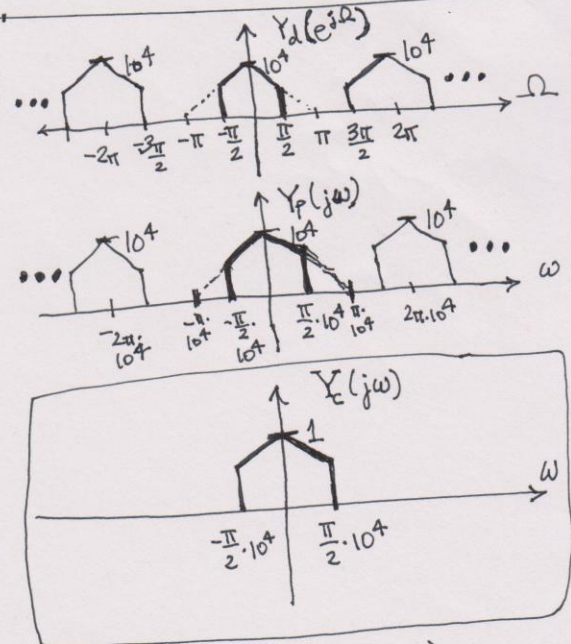 Y_d(e^{jΩ})
10^4 10^4 10^4
••• ••• Ω
-2π -3π/2 -π -π/2 π/2 π 3π/2 2π
Y_p(jω)
10^4 10^4 10^4
••• ••• ω
-2π·10^4 -π·10^4 -π/2·10^4 π/2·10^4 π·10^4 2π·10^4
Y_c(jω)
1
ω
-π/2·10^4 π/2·10^4